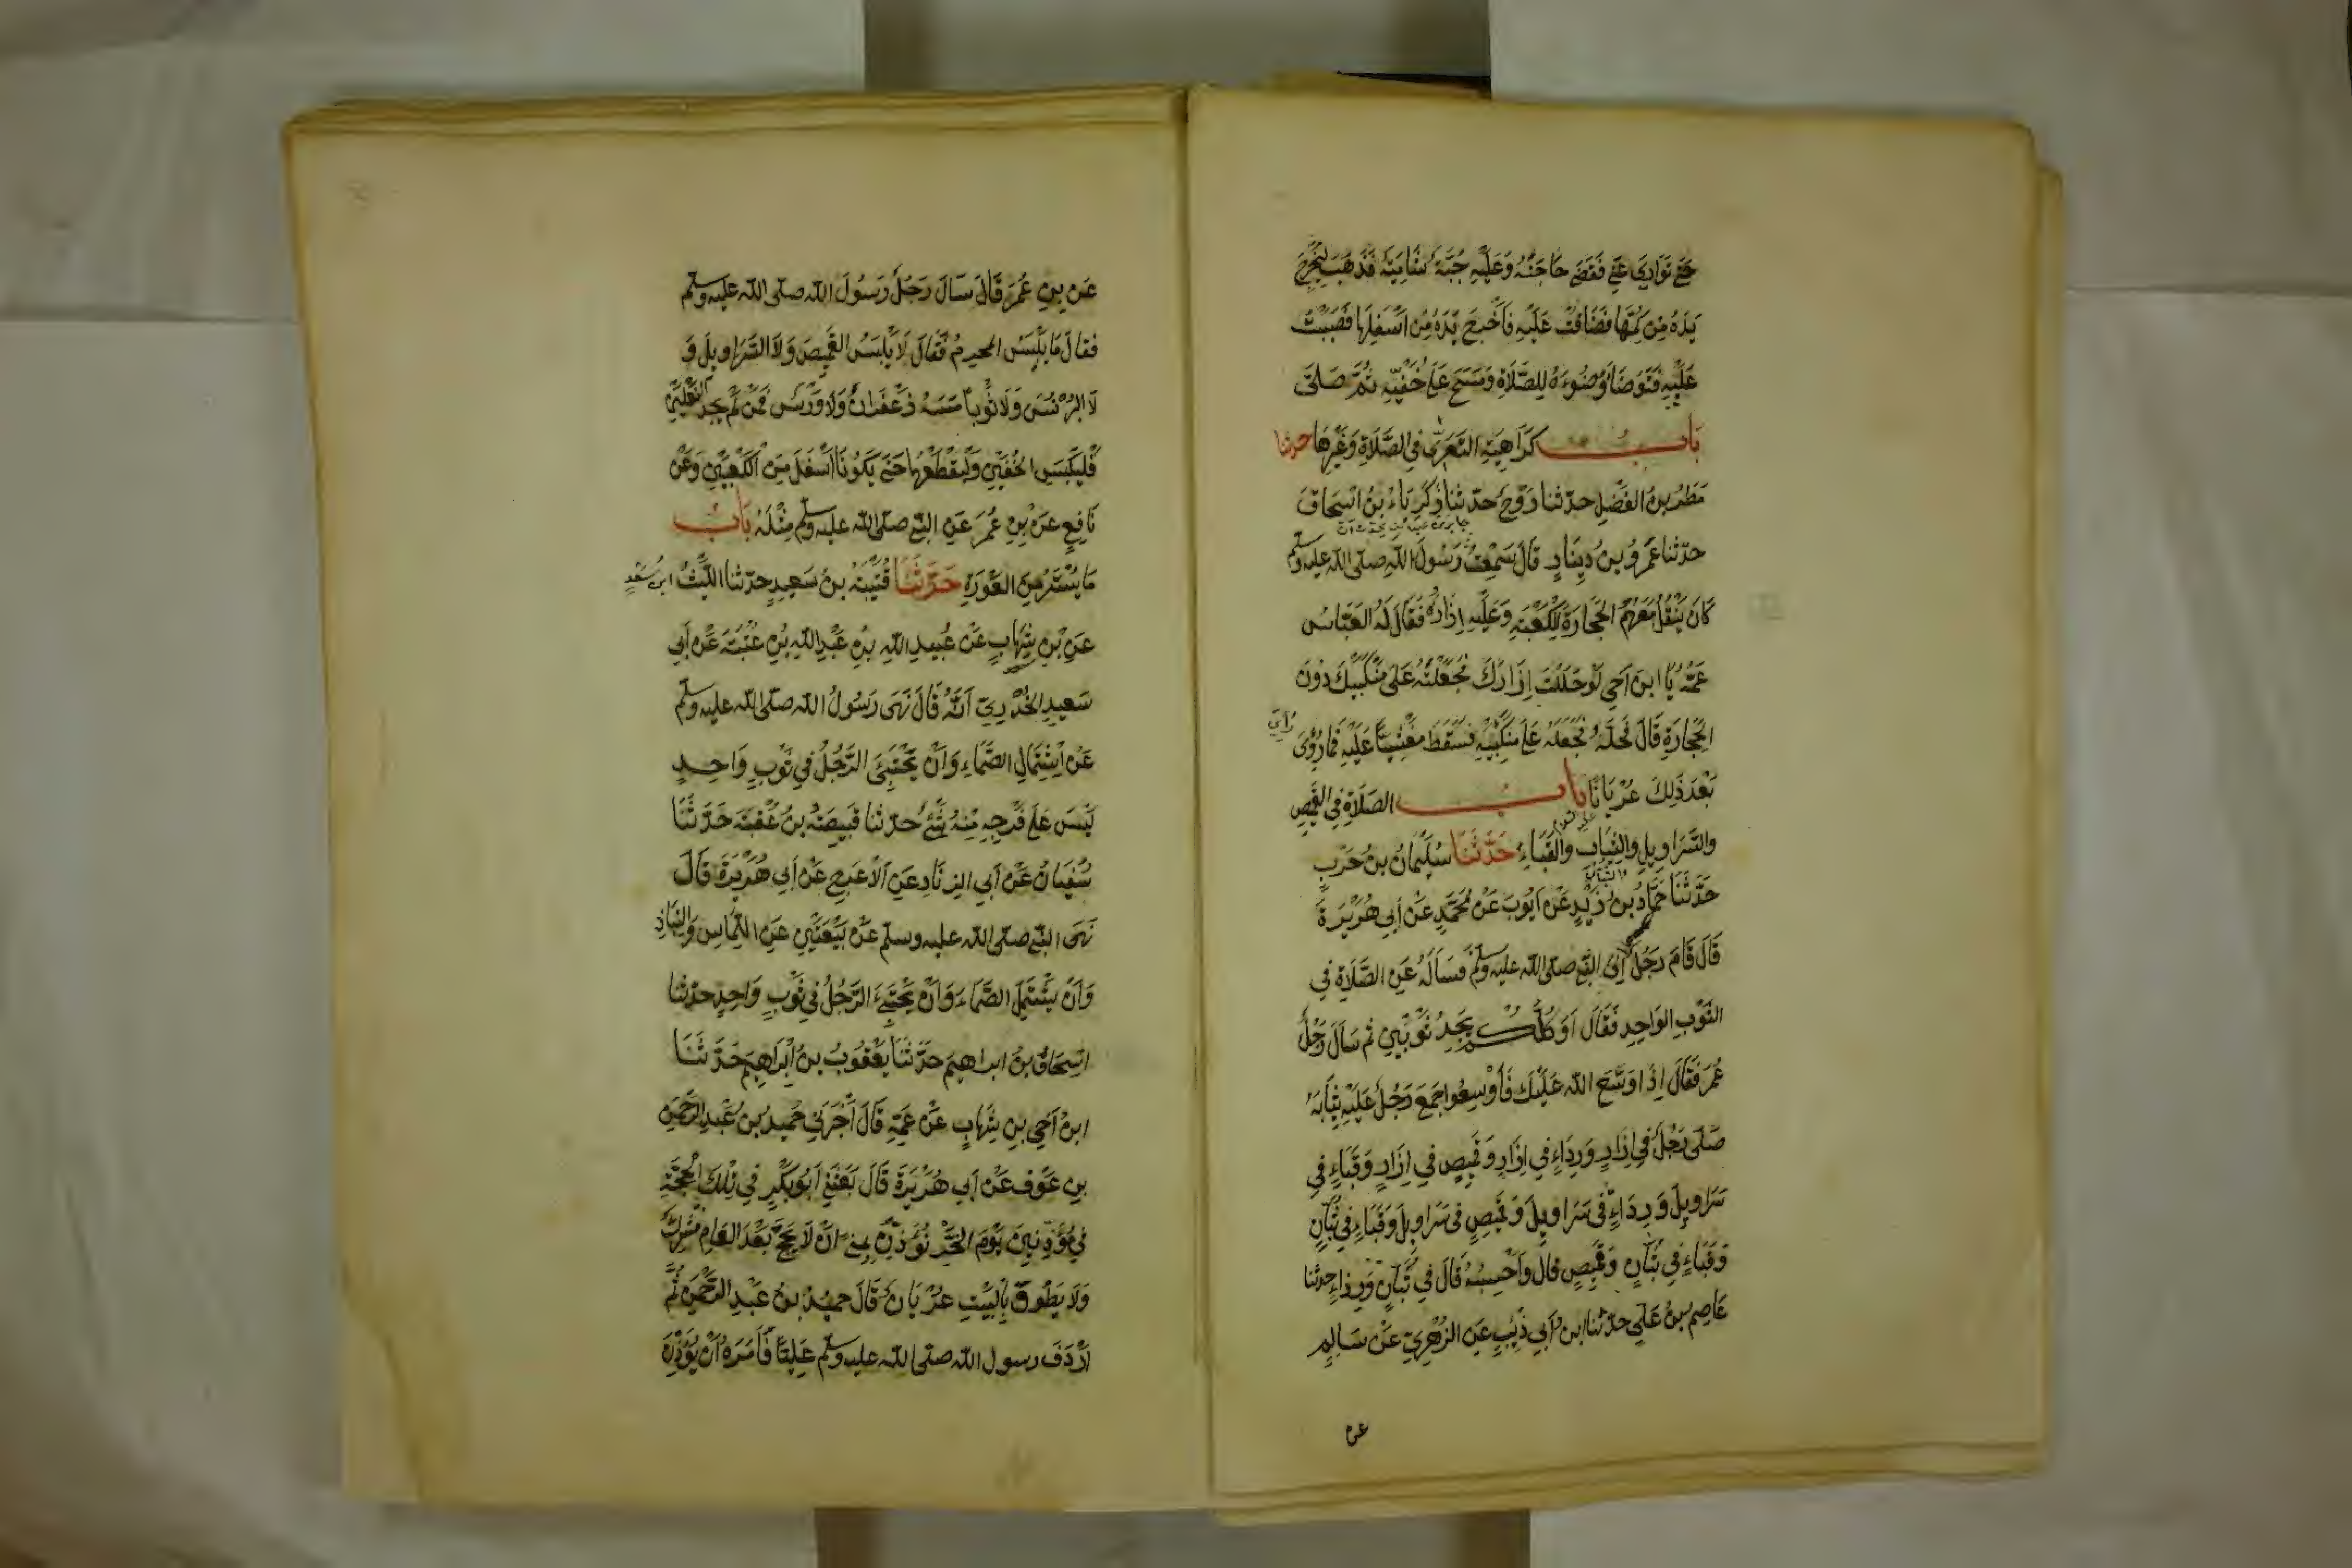 حَتّٰى تَوَارٰى عَنِّي فَقَضٰى حَاجَتَهُ وَعَلَيْهِ جُبَّةٌ شَامِيَّةٌ فَذَهَبَ لِيُخْرِجَ
يَدَهُ مِنْ كُمِّهَا فَضَاقَتْ عَلَيْهِ فَاَخْرَجَ يَدَهُ مِنْ اَسْفَلِهَا فَصَبَبْتُ
عَلَيْهِ فَتَوَضَّأَ وُضُوءَهُ لِلصَّلَاةِ وَمَسَحَ عَلٰى خُفَّيْهِ ثُمَّ صَلَّى
بَابُ كَرَاهِيَةِ التَّعَرِّي فِي الصَّلَاةِ وَغَيْرِهَا حدثنا
مَطَرُ بنُ الفَضْلِ حدّثنا رَوْحٌ حدّثنا زَكَرِيَّاءُ بنُ اِسْحَاقَ
حدّثنا عَمْرُو بنُ دِينَارٍ قَالَ سَمِعْتُ جابر بن عبد الله يحدث ان رَسُولَ اللّٰهِ صلّى اللّٰه عليه وسلّم
كَانَ يَنْقُلُ مَعَهُمُ الحِجَارَةَ لِلْكَعْبَةِ وَعَلَيْهِ اِزَارُهُ فَقَالَ لَهُ العَبَّاسُ
عَمُّهُ يَا ابنَ اَخِي لَوْ حَلَلْتَ اِزَارَكَ فَجَعَلْتَهُ عَلٰى مَنْكِبَيْكَ دُونَ
الحِجَارَةِ قَالَ فَحَلَّهُ فَجَعَلَهُ عَلٰى مَنْكِبَيْهِ فَسَقَطَ مَغْشِيًّا عَلَيْهِ فَمَا رُؤِىَ
بَعْدَ ذٰلِكَ عُرْيَانًا بَابُ الصَّلَاةِ فِي القَمِيصِ
وَالسَّرَاوِيلِ وَالثِّيَابِ وَالقَبَاءِ حَدَّثَنَا سُلَيْمَانُ بنُ حَرْبٍ
حَدَّثَنَا حَمَّادُ بنُ زَيْدٍ عَنْ اَيُّوبَ عَنْ مُحَمَّدٍ عَنْ اَبِي هُرَيْرَةَ
قَالَ قَامَ رَجُلٌ اِلَى النَّبِيِّ صلّى اللّٰه عليه وسلّم فَسَأَلَهُ عَنِ الصَّلَاةِ فِي
الثَّوْبِ الوَاحِدِ فَقَالَ اَوَكُلُّكُمْ يَجِدُ ثَوْبَيْنِ ثُمَّ سَأَلَ رَجُلٌ
عُمَرَ فَقَالَ اِذَا وَسَّعَ اللّٰه عَلَيْكَ فَأَوْسِعُوا جَمَعَ رَجُلٌ عَلَيْهِ ثِيَابَهُ
صَلَّى رَجُلٌ فِي اِزَارٍ وَرِدَاءٍ فِي اِزَارٍ وَقَمِيصٍ فِي اِزَارٍ وَقَبَاءٍ فِي
سَرَاوِيلَ وَرِدَاءٍ فِي سَرَاوِيلَ وَقَمِيصٍ فِي سَرَاوِيلَ وَقَبَاءٍ فِي تُبَّانٍ
وَقَبَاءٍ فِي تُبَّانٍ وَقَمِيصٍ قَالَ وَاَحْسِبُهُ قَالَ فِي تُبَّانٍ وَرِدَاءٍ حدثنا
عَاصِمُ بنُ عَلِيٍّ حدّثنا ابنُ اَبِي ذِئْبٍ عَنِ الزُّهْرِيِّ عَنْ سَالِمٍ
عن
عَنْ بنِ عُمَرَ قَالَ سَأَلَ رَجُلٌ رَسُولَ اللّٰه صلّى اللّٰه عليه وسلّم
فقالَ مَا يَلْبَسُ المحرِمُ فَقَالَ لَا يَلْبَسُ القَمِيصَ وَلَا السَّرَاوِيلَ وَ
لَا البُرْنُسَ وَلَا ثَوْبًا مَسَّهُ زَعْفَرَانٌ وَلَا وَرْسٌ فَمَنْ لَمْ يَجِدِ النَّعْلَيْنِ
فَلْيَلْبَسِ الخُفَّيْنِ وَلْيَقْطَعْهُمَا حَتّٰى يَكُونَا اَسْفَلَ مِنَ الكَعْبَيْنِ وَعَنْ
نَافِعٍ عَنْ بنِ عُمَرَ عَنِ النَّبِيِّ صلّى اللّٰه عليه وسلّم مِثْلَهُ بَابُ
مَا يَسْتُرُ مِنَ العَوْرَةِ حَدَّثَنَا قُتَيْبَةُ بنُ سَعِيدٍ حدّثنا اللَّيْثُ ابنُ سَعْدٍ
عَنِ بنِ شِهَابٍ عَنْ عُبَيدِ اللّٰهِ بنِ عَبْدِ اللّٰهِ بنِ عُتْبَةَ عَنْ اَبِي
سَعِيدٍ الخُدْرِيِّ اَنَّهُ قَالَ نَهَى رَسُولُ اللّٰه صلّى اللّٰه عليه وسلّم
عَنْ اِشْتِمَالِ الصَّمَّاءِ وَاَنْ يَحْتَبِىَ الرَّجُلُ فِي ثَوْبٍ وَاحِدٍ
لَيْسَ عَلٰى فَرْجِهِ مِنْهُ شَىْءٌ حدّثنا قَبِيصَةُ بنُ عُقْبَةَ حَدَّثَنَا
سُفْيَانُ عَنْ اَبِي الزِّنَادِ عَنِ الاَعْرَجِ عَنْ اَبِي هُرَيْرَةَ قَالَ
نَهَى النَّبِيُّ صلّى اللّٰه عليه وسلّم عَنْ بَيْعَتَيْنِ عَنِ اللِّمَاسِ وَالنِّبَاذِ
وَاَنْ يَشْتَمِلَ الصَّمَّاءَ وَاَنْ يَحْتَبِىَ الرَّجُلُ فِي ثَوْبٍ وَاحِدٍ حدّثنا
اِسْحَاقُ بنُ ابراهيم حَدَّثَنَا يَعْقُوبُ بنُ اِبْرَاهِيمَ حَدَّثَنَا
ابنُ اَخِي بنِ شِهَابٍ عَنْ عَمِّهِ قَالَ اَخْبَرَنِي حُمَيدُ بنُ عَبْدِ الرَّحْمٰنِ
بنِ عَوْفٍ عَنْ اَبِي هُرَيْرَةَ قَالَ بَعَثَنِي اَبُوبَكْرٍ فِي تِلْكَ الحَجَّةِ
فِي مُؤَذِّنِينَ يَوْمَ النَّحْرِ نُؤَذِّنُ بِمِنًى اَنْ لَا يَحُجَّ بَعْدَ العَامِ مُشْرِكٌ
وَلَا يَطُوفَ بِالبَيْتِ عُرْيَانٌ قَالَ حميدُ بنُ عَبْدِ الرَّحْمٰنِ ثُمَّ
اَرْدَفَ رسول اللّٰه صلى اللّٰه عليه وسلّم عَلِيًّا فَأَمَرَهُ اَنْ يُؤَذِّنَ